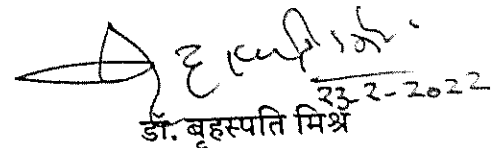 23-2-2022
डॉ. बृहस्पति मिश्र